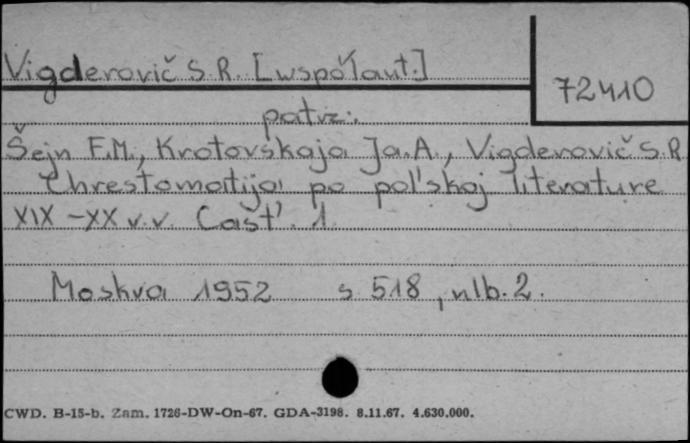 Vigderovič S.R. [współaut.]
72410
patrz:
Šejn F.M., Krotovskaja Ja.A., Vigderovič S.R.
Chrestomatija po pol'skoj literature
XIX-XX v.v. Čast' 1.
Moskva 1952 s. 518, nlb. 2.
CWD. B-15-b. Zam. 1726-DW-On-67. GDA-3198. 8.11.67. 4.630.000.